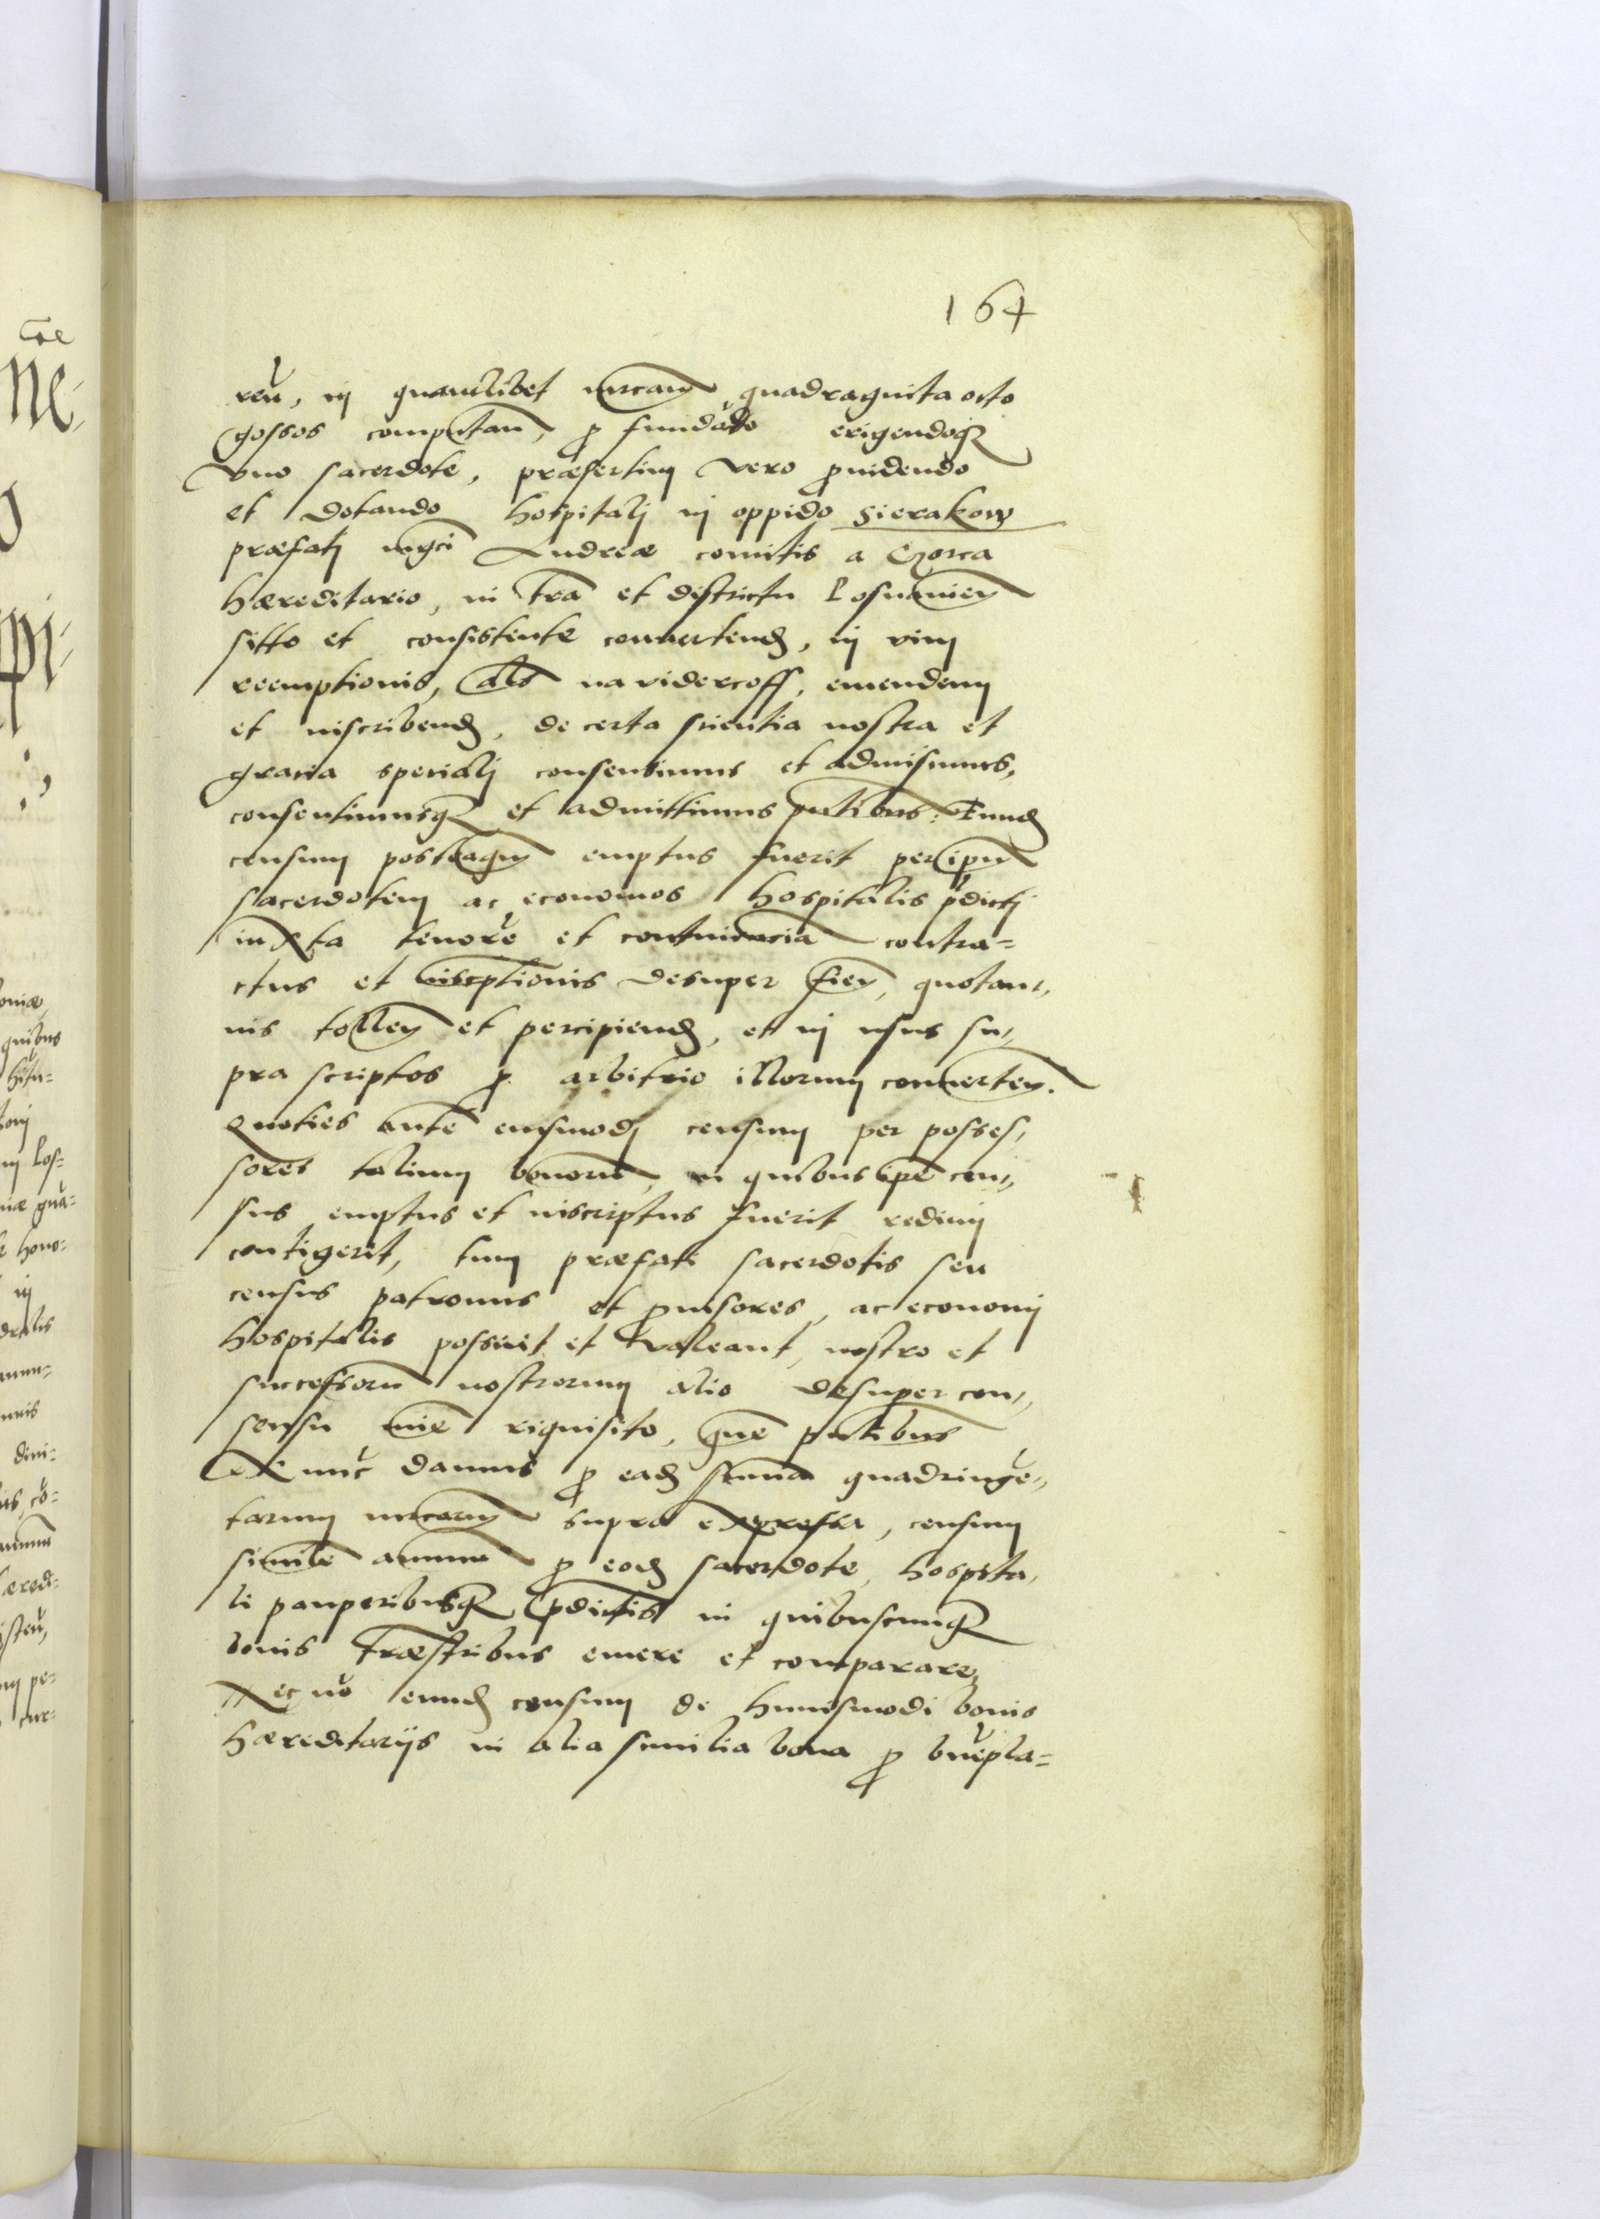 164
reū, in quamlibet mrcam quadraginta octo
grossos computan̄, p fundādo erigendoq3
vno sacerdote, præsertim vero p̱uidendo
et dotando hospitalj in oppido Sierakow
præfatj mgci Andreæ comitis a Gorca
hæreditario, in tra et districtu Posnanien
sitto et consistente conuertend, in vim
reemptionis, als na vidercoff, emendum
et inscribend, de certa scientia nostra et
gracia specialj consensimus et admisimus,
consentimusq3 et admittimus pntibus. Eund
censum postqm emptus fuerit per ipm
sacerdotem ac economos hospitalis pdictj
iuxta tenorē et continenciā contra=
ctus et inscptionis desuper fien, quotan,
nis tollen et percipiend, et in vsus su,
pra scriptos p arbitrio illorum conuerten.
Quoties aute eiusmodj censum per posses,
sores talium bonorū, in quibus ipe cen,
sus emptus et inscriptus fuerit redimj
contigerit, tum præfati sacerdotis seu
census patronus et puisores, ac economj
hospitalis possint et valeant, nostro et
successorū nostrorum alio desuper con,
sensu mie riquisito, que pntibus
ex nūc damus p ead summa quadringē,
tarum mrcarum supra expressa, censum
simile annuu p eod sacerdote, hospita,
li pauperibusq3 pdictis in quibuscunq3
bonis træstribus emere et comparare,
Nec nō eund censum de huiusmodi bonis
hæreditarijs in alia similia bona p bnēpla=